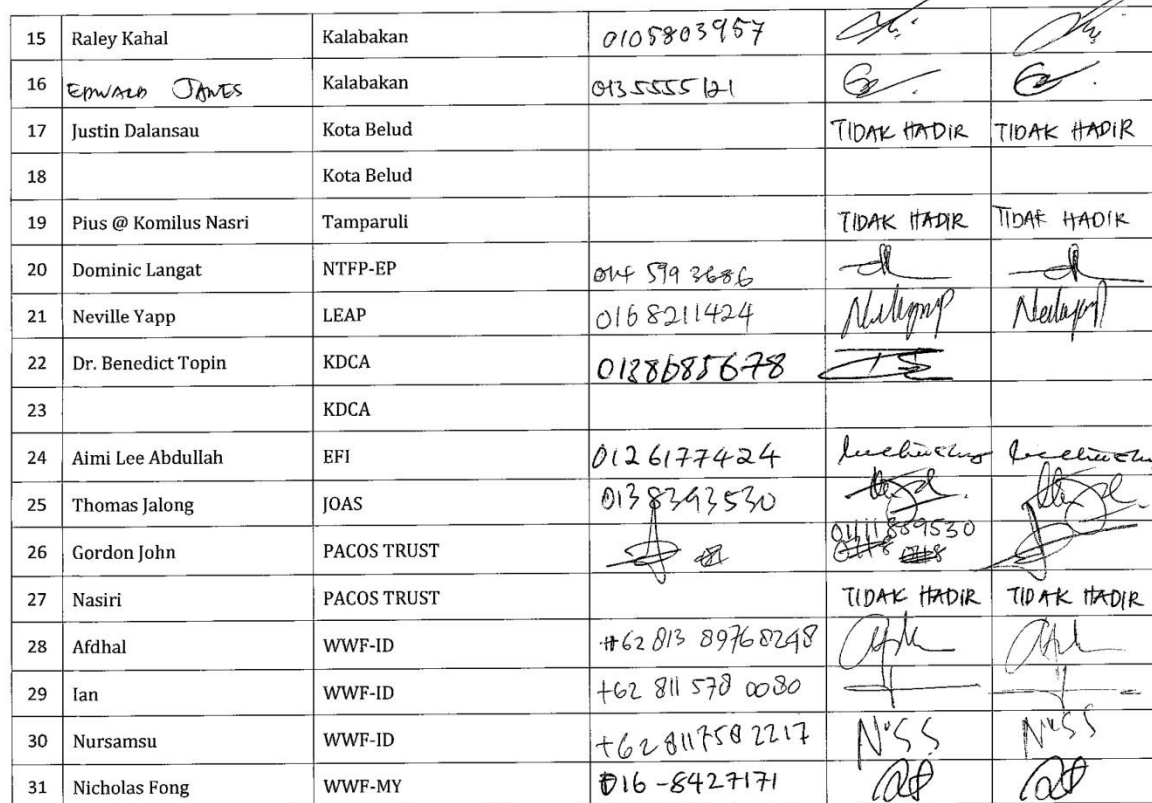 15 Raley Kahal Kalabakan 0105803957
16 EDWARD JAMES Kalabakan 0135555121
17 Justin Dalansau Kota Belud TIDAK HADIR TIDAK HADIR
18 Kota Belud
19 Pius @ Komilus Nasri Tamparuli TIDAK HADIR TIDAK HADIR
20 Dominic Langat NTFP-EP 014 5993686
21 Neville Yapp LEAP 0168211424
22 Dr. Benedict Topin KDCA 0138685678
23 KDCA
24 Aimi Lee Abdullah EFI 0126177424
25 Thomas Jalong JOAS 0138393530
26 Gordon John PACOS TRUST 01111889530
27 Nasiri PACOS TRUST TIDAK HADIR TIDAK HADIR
28 Afdhal WWF-ID +62 813 89768248
29 Ian WWF-ID +62 811 578 0080
30 Nursamsu WWF-ID +62 811 758 2217
31 Nicholas Fong WWF-MY 016-8427171